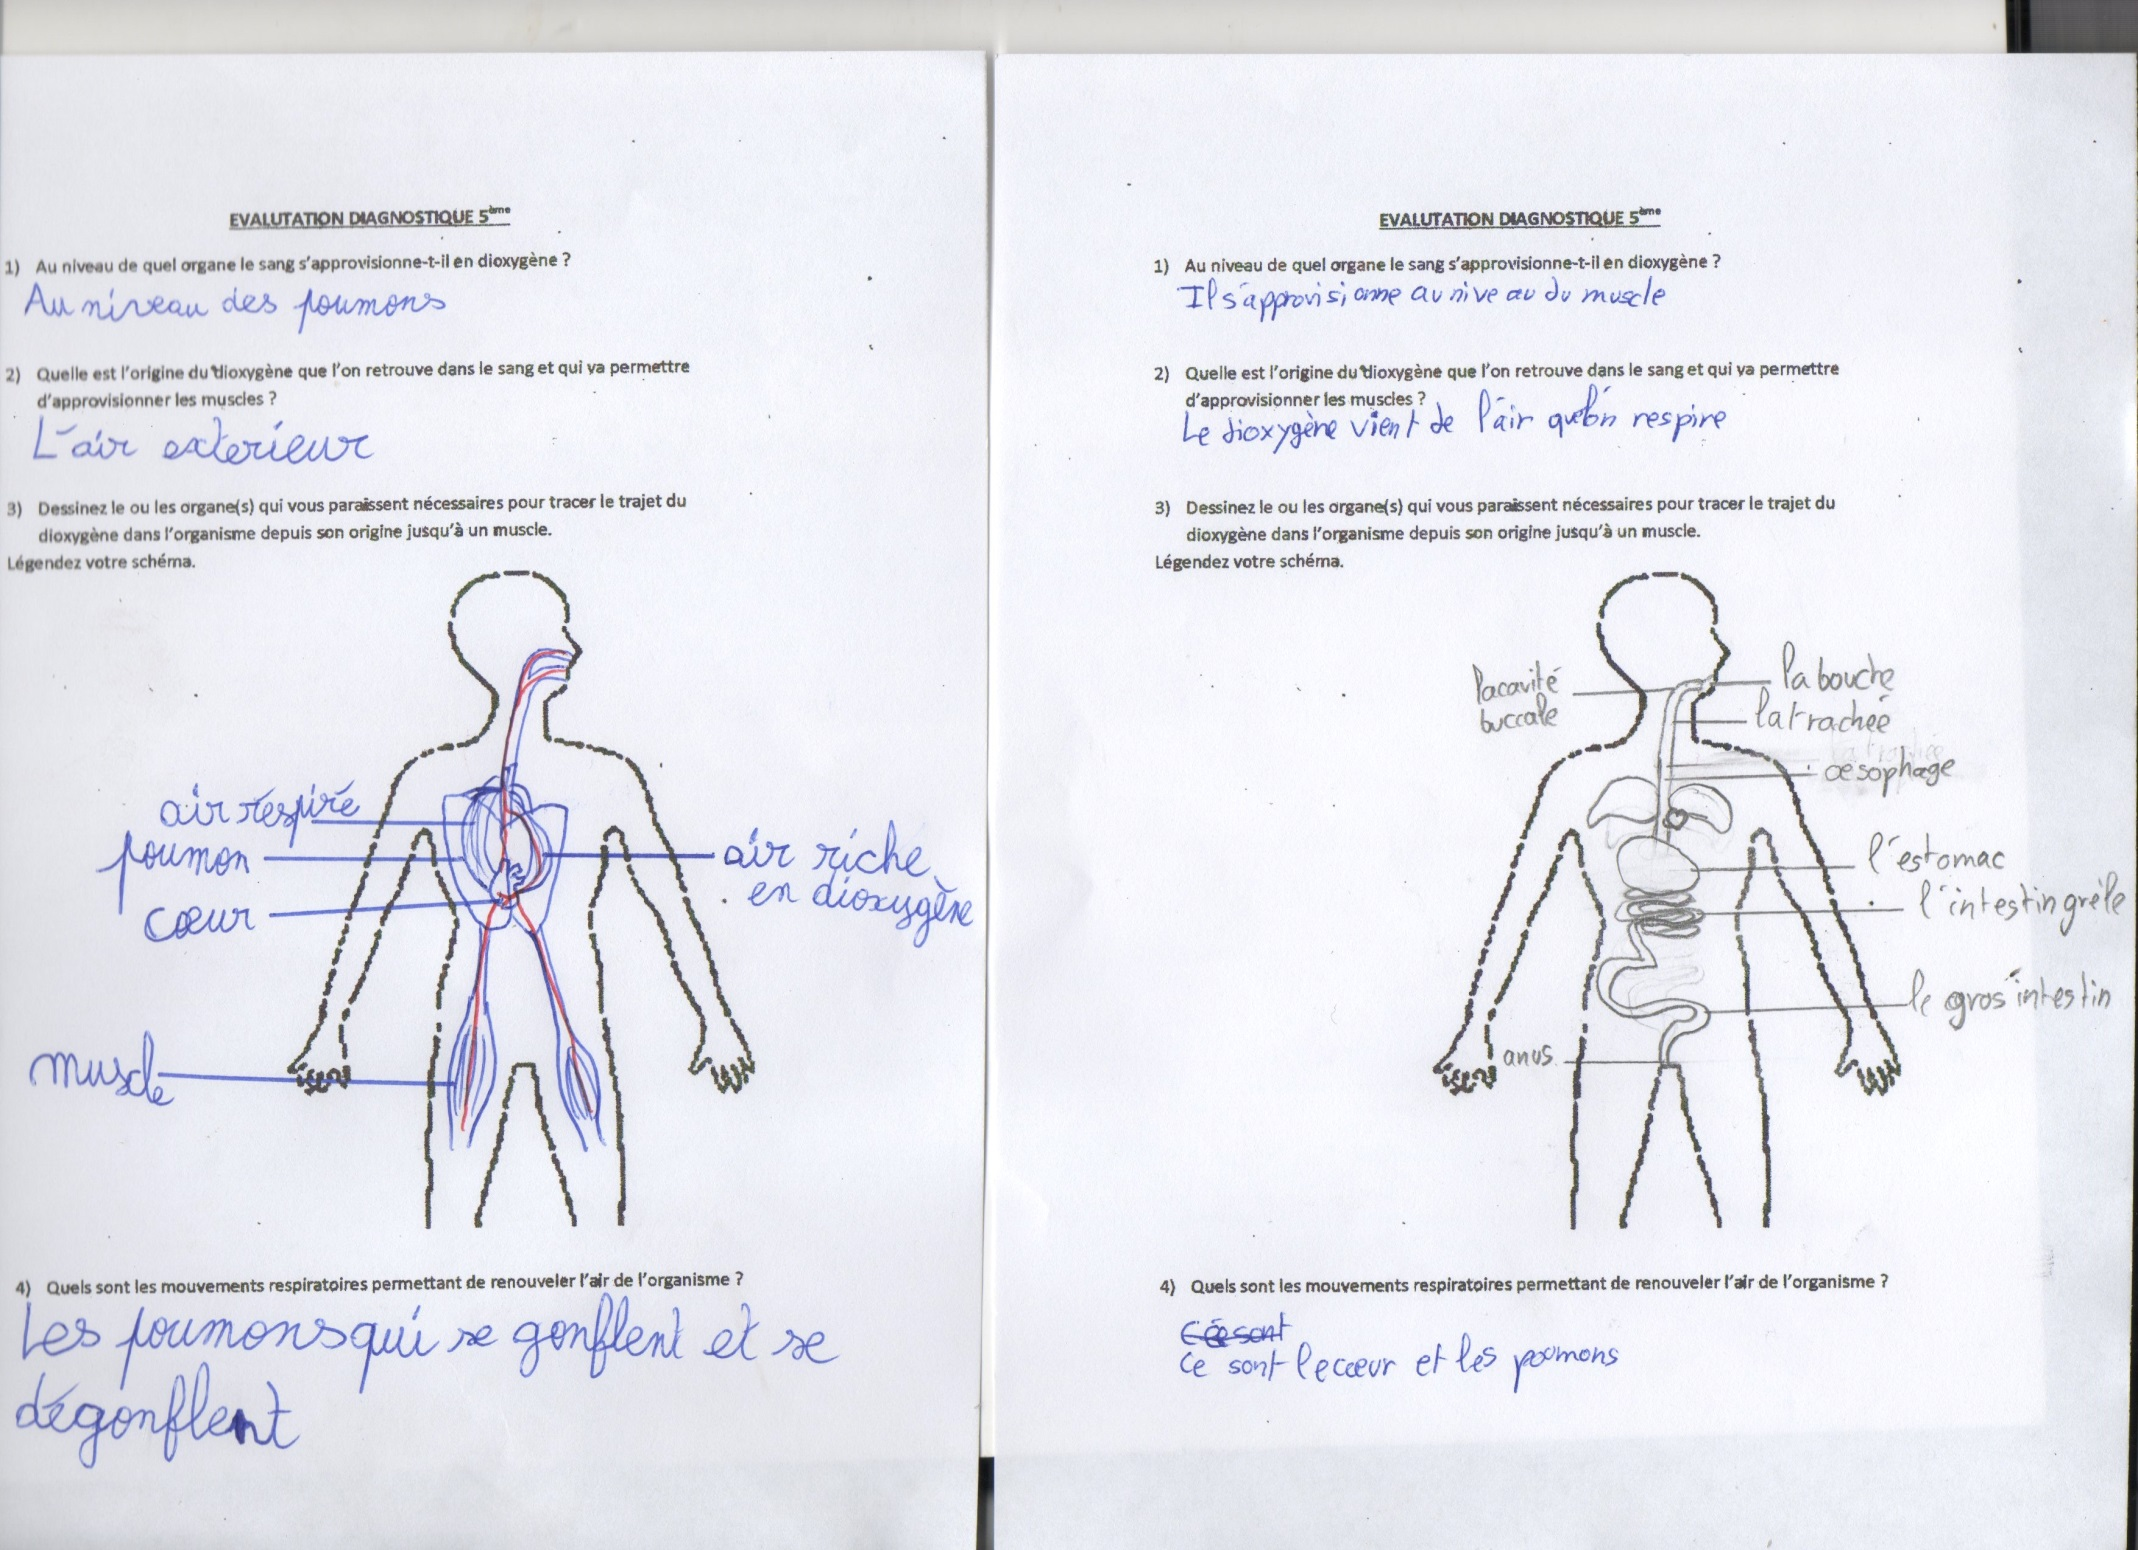 EVALUTATION DIAGNOSTIQUE 5ème
1) Au niveau de quel organe le sang s'approvisionne-t-il en dioxygène ?
Au niveau des poumons
2) Quelle est l'origine du dioxygène que l'on retrouve dans le sang et qui va permettre
d'approvisionner les muscles ?
L'air exterieur
3) Dessinez le ou les organe(s) qui vous paraissent nécessaires pour tracer le trajet du
dioxygène dans l'organisme depuis son origine jusqu'à un muscle.
Légendez votre schéma.
air respiré
poumon
cœur
muscle
air riche
en dioxygène
4) Quels sont les mouvements respiratoires permettant de renouveler l'air de l'organisme ?
Les poumons qui se gonflent et se
dégonflent
EVALUTATION DIAGNOSTIQUE 5ème
1) Au niveau de quel organe le sang s'approvisionne-t-il en dioxygène ?
Il s'approvisionne au niveau du muscle
2) Quelle est l'origine du dioxygène que l'on retrouve dans le sang et qui va permettre
d'approvisionner les muscles ?
Le dioxygène vient de l'air qu'on respire
3) Dessinez le ou les organe(s) qui vous paraissent nécessaires pour tracer le trajet du
dioxygène dans l'organisme depuis son origine jusqu'à un muscle.
Légendez votre schéma.
la cavité
buccale
la bouche
la trachée
œsophage
l'estomac
l'intestin grêle
le gros intestin
anus
4) Quels sont les mouvements respiratoires permettant de renouveler l'air de l'organisme ?
Ce sont le cœur et les poumons